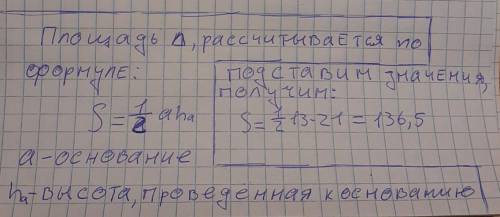 Площадь Δ, рассчитывается по
формуле:
S = 1/2 aha
a - основание
подставим значения,
получим:
S = 1/2 13·21 = 136,5
ha - высота, проведенная к основанию